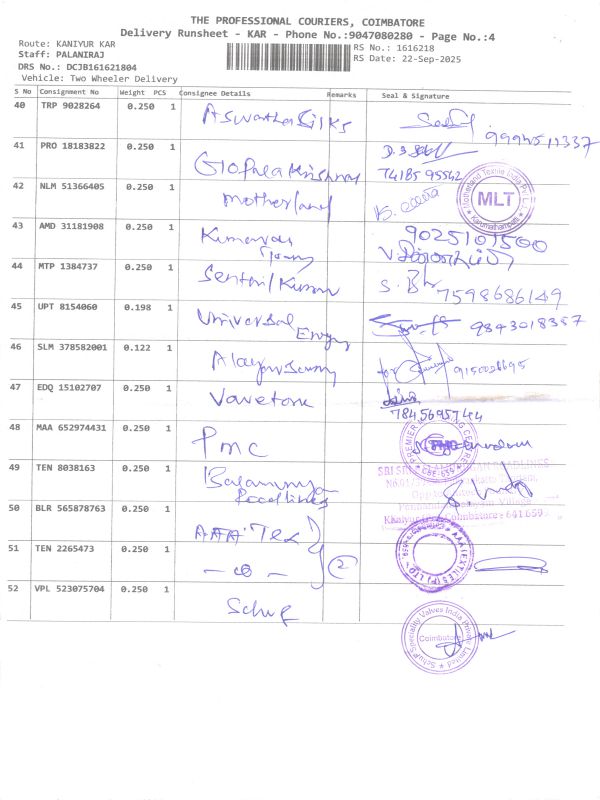 THE PROFESSIONAL COURIERS, COIMBATORE
Delivery Runsheet - KAR - Phone No.:9047080280 - Page No.:4
Route: KANIYUR KAR
RS No.: 1616218
Staff: PALANIRAJ
RS Date: 22-Sep-2025
DRS No.: DCJB161621804
Vehicle: Two Wheeler Delivery
S No Consignment No Weight PCS Consignee Details Remarks Seal & Signature
40 TRP 9028264 0.250 1 Aswatha Silks 9994511337
41 PRO 18183822 0.250 1 Gopala Krishnan 7418595542
42 NLM 51366405 0.250 1 Motherland
Motherland Textile India Pvt Ltd
MLT
Karumathampatti
43 AMD 31181908 0.250 1 9025101500
44 MTP 1384737 0.250 1 Senthil Kumar 7598686149
45 UPT 8154060 0.198 1 Universal Energy 9843018357
46 SLM 378582001 0.122 1 for 9150026695
47 EDQ 15102707 0.250 1
7845695744
48 MAA 652974431 0.250 1 PMC
49 TEN 8038163 0.250 1 Foodlines
50 BLR 565878763 0.250 1 AAA Tex
51 TEN 2265473 0.250 1 2
52 VPL 523075704 0.250 1 Schuf
Coimbatore - 641659
Schuf Speciality Valves India Private Limited
Coimbatore